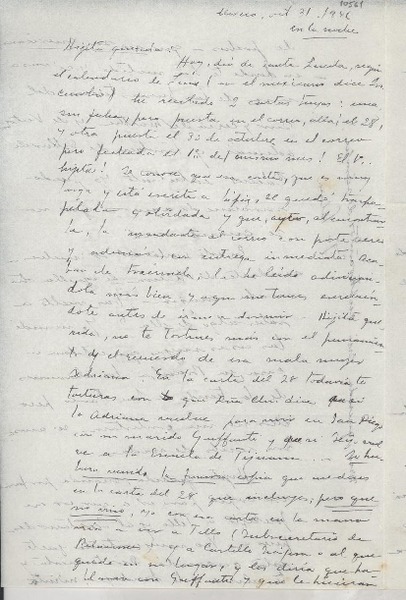 10561
México, oct 31, 1946
en la noche.
Hijita querida: Hoy, día de santa Lucila, según
el calendario de (en el mexicano dice
) he recibido 2 cartas tuyas: una
sin fecha, pero puesta en el correo, allá, el 28,
y otra puesta el 30 de octubre en el correo
pero fechada el 1º del mismo mes! El 1º,
hijita! Se conoce que esa carta, que es muy
larga y está escrita a lápiz, se quedó traspa-
pelada y olvidada y que, ayer, al encontrar-
la, la mandaste al correo con porte aéreo
y además, con entrega inmediata. Aca-
bo de traérmela. La he leído adivinán-
dola más bien y aquí me tienes escribién-
dote antes de irme a dormir. Hijita que-
rida, no te tortures más con el pensamien-
to y el recuerdo de esa mala mujer
Adriana. En la carta del 28 todavía te
torturas con lo que Don dice que si
la Adriana vuelve para vivir en San Diego
con su marido Guffante y que si
ve a la Escuela de Tijuana ... Se hu-
biera la copia que me dices
en la carta del 28 que incluyes, pero que
no vino, yo con esa carta en la mano
a ver a Tello (Subsecretario de
Relaciones) y a Castillo Nájera o al que
quede en su lugar, y les diría que ha-
blaran con Guffante y que le hicieran